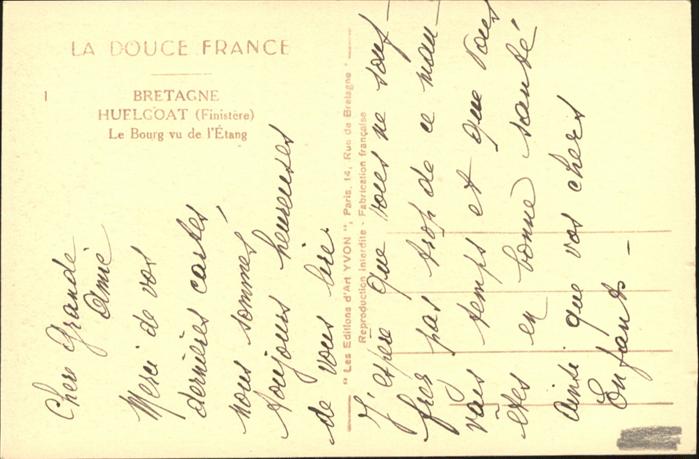 LA DOUCE FRANCE
1
BRETAGNE
HUELGOAT (Finistère)
Le Bourg vu de l'Étang
" Les Editions d'Art YVON ", Paris, 14, Rue de Bretagne
Reproduction interdite - Fabrication française
Chère Grande
Amie
Merci de vos
dernières cartes,
nous sommes
toujours heureuses
de vous lire.
J'espère que vous ne souf-
frez pas trop de ce mau-
vais temps et que vous
êtes en bonne santé
ainsi que vos chers
Enfants -